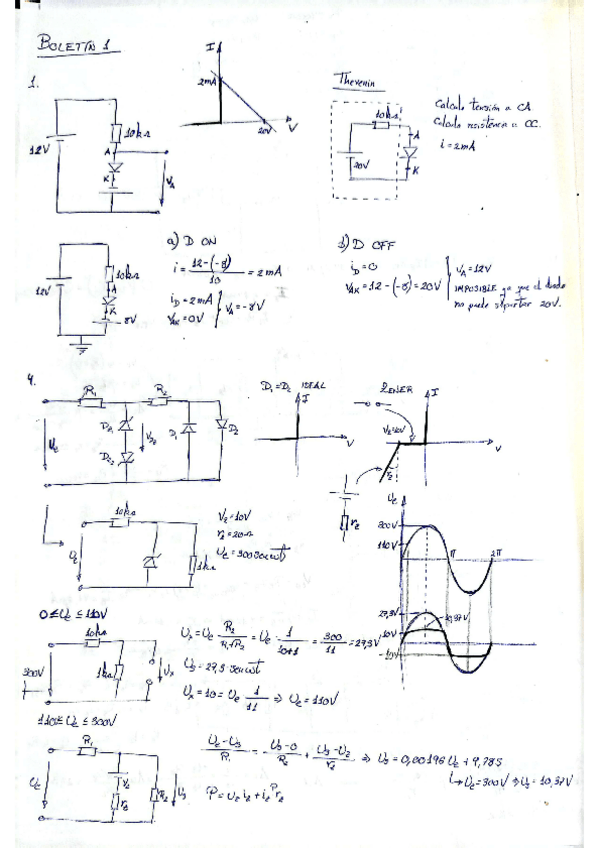 BOLETIN 1
1.
I
2mA
20V
V
12V
10kΩ
A
K
VA
Thevenin
10kΩ
A
20V
K
Calculo tensión a CA.
Calculo resistencia a CC.
i = 2mA
12V
10kΩ
A
K
8V
a) D ON
i = 12-(-8) / 10 = 2mA
iD = 2mA
VAK = 0V
VA = -8V
b) D OFF
iD = 0
VAK = 12-(-8) = 20V
VA = 12V
IMPOSIBLE ya que el diodo
no puede soportar 20V.
4.
R1
R2
Ue
DZ1
DZ2
D1
D2
D1 = D2 IDEAL
I
V
ZENER
I
V
rz
rz
10kΩ
Ue
1kΩ
Vz = 10V
rz = 20Ω
Ue = 300 sen ωt
Ue
300V
110V
π
2π
27,3V
10,37V
10V
-10V
0 ≤ Ue ≤ 110V
10kΩ
300V
1kΩ
Ux
Ux = Ue R2 / R1+R2 = Ue · 1 / 10+1 = 300 / 11 = 27,3V
Us = 27,3 sen ωt
Ux = 10 = Ue 1 / 11 ⇒ Ue = 110V
110 ≤ Ue ≤ 300V
R1
Ue
Vz
rz
R2
Us
Ue-Us / R1 = Us-0 / R2 + Us-Uz / rz ⇒ Us = 0,00196 Ue + 9,785
Ue = 300V ⇒ Us = 10,37V